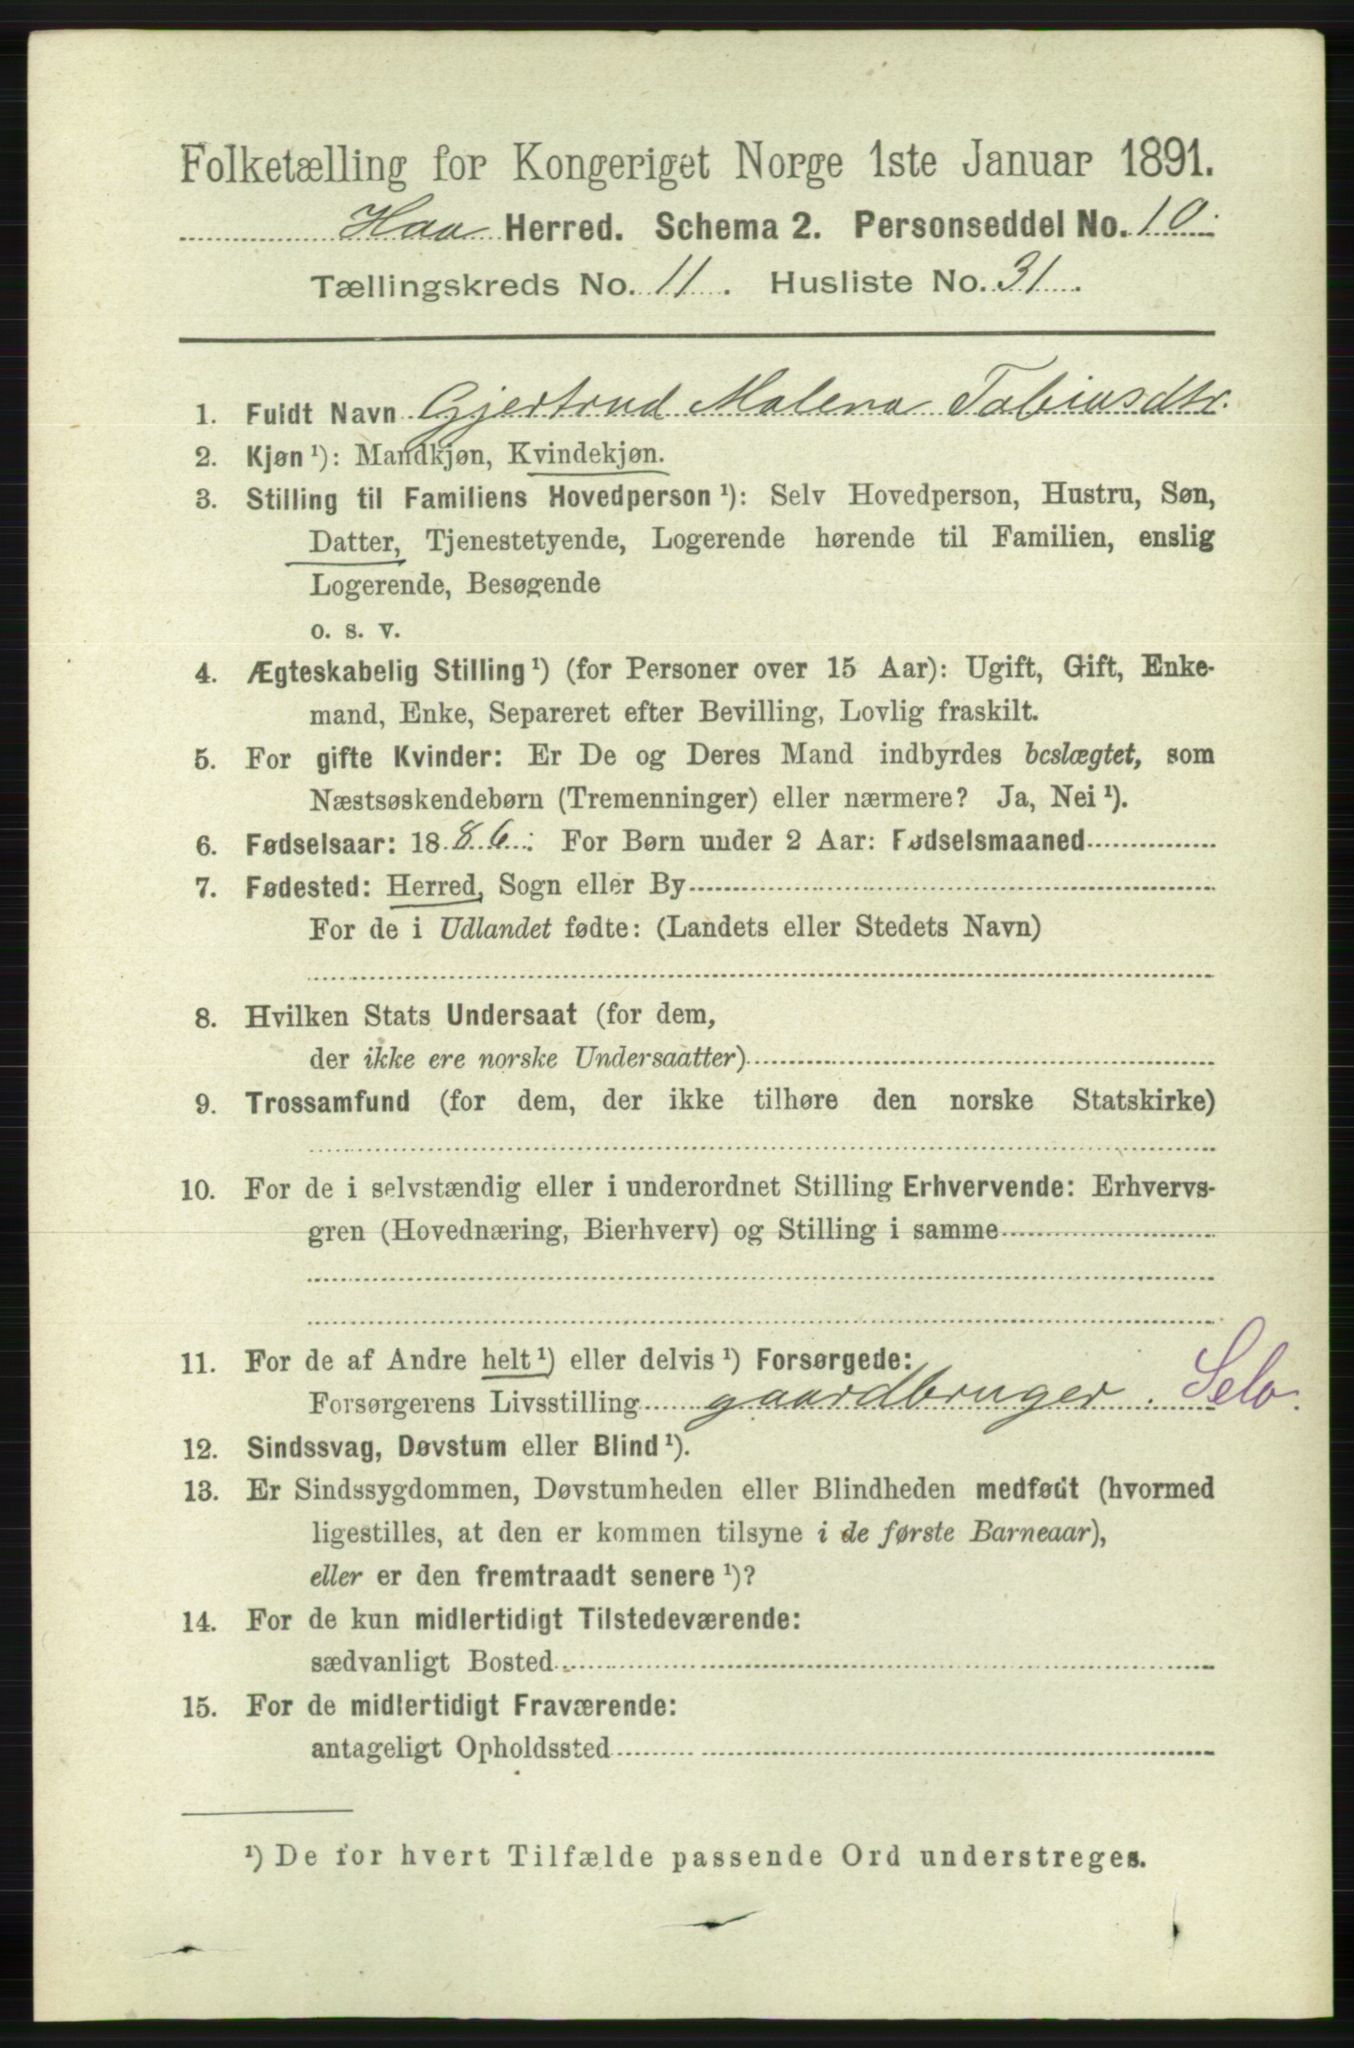 Folketælling for Kongeriget Norge 1ste Januar 1891.
Haa Herred. Schema 2. Personseddel No. 10.
Tællingskreds No. 11. Husliste No. 31.
1. Fuldt Navn Gjertrud Malena Tobiasdtr.
2. Kjøn ¹): Mandkjøn, Kvindekjøn.
3. Stilling til Familiens Hovedperson ¹): Selv Hovedperson, Hustru, Søn,
Datter, Tjenestetyende, Logerende hørende til Familien, enslig
Logerende, Besøgende
o. s. v.
4. Ægteskabelig Stilling ¹) (for Personer over 15 Aar): Ugift, Gift, Enke-
mand, Enke, Separeret efter Bevilling, Lovlig fraskilt.
5. For gifte Kvinder: Er De og Deres Mand indbyrdes beslægtet, som
Næstsøskendebørn (Tremenninger) eller nærmere? Ja, Nei ¹).
6. Fødselsaar: 1886. For Børn under 2 Aar: Fødselsmaaned
7. Fødested: Herred, Sogn eller By
For de i Udlandet fødte: (Landets eller Stedets Navn)
8. Hvilken Stats Undersaat (for dem,
der ikke ere norske Undersaatter)
9. Trossamfund (for dem, der ikke tilhøre den norske Statskirke)
10. For de i selvstændig eller i underordnet Stilling Erhvervende: Erhvervs-
gren (Hovednæring, Bierhverv) og Stilling i samme
11. For de af Andre helt ¹) eller delvis ¹) Forsørgede:
Forsørgerens Livsstilling gaardbruger. Selv.
12. Sindssvag, Døvstum eller Blind ¹).
13. Er Sindssygdommen, Døvstumheden eller Blindheden medfødt (hvormed
ligestilles, at den er kommen tilsyne i de første Barneaar),
eller er den fremtraadt senere ¹)?
14. For de kun midlertidigt Tilstedeværende:
sædvanligt Bosted
15. For de midlertidigt Fraværende:
antageligt Opholdssted
¹) De for hvert Tilfælde passende Ord understreges.